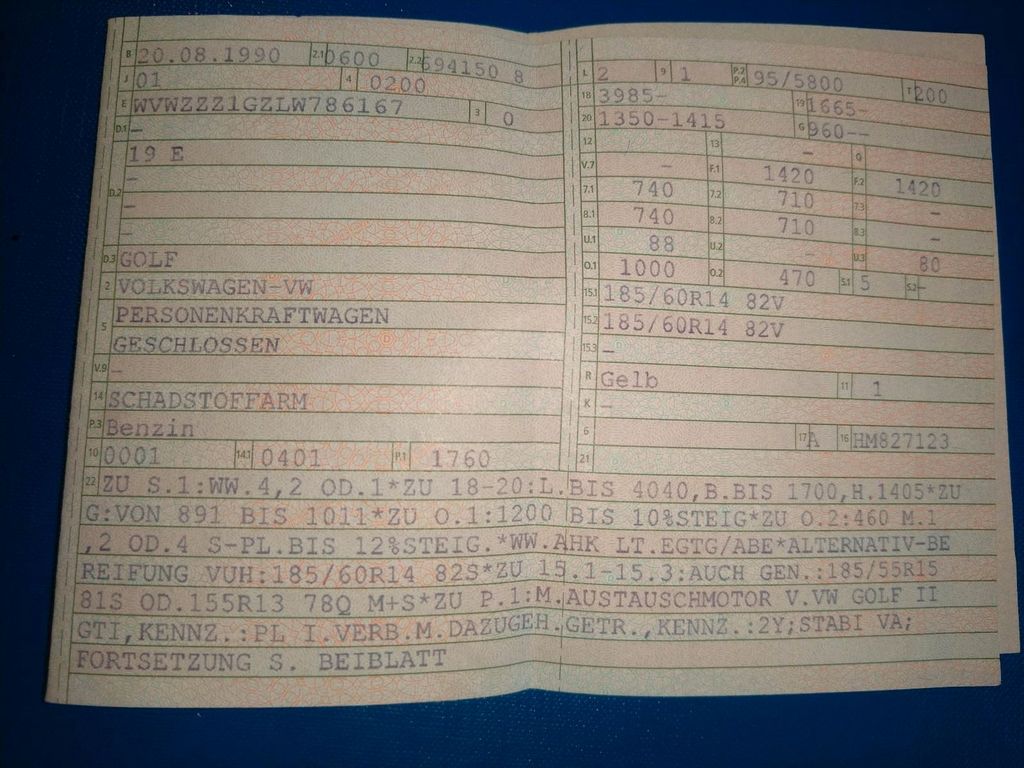 B 20.08.1990 2.1 0600 2.2 694150 8
J 01 4 0200
E WVWZZZ1GZLW786167 3 0
D.1 –
D.2 19 E
–
–
–
D.3 GOLF
2 VOLKSWAGEN-VW
5 PERSONENKRAFTWAGEN
GESCHLOSSEN
V.9 –
14 SCHADSTOFFARM
P.3 Benzin
10 0001 14.1 0401 P.1 1760
L 2 9 1 P.2 P.4 95/5800 T 200
18 3985- 19 1665-
20 1350-1415 G 960--
12 13 – Q
V.7 – F.1 1420 F.2 1420
7.1 740 7.2 710 7.3 –
8.1 740 8.2 710 8.3 –
U.1 88 U.2 – U.3 80
O.1 1000 O.2 470 S.1 5 S.2 –
15.1 185/60R14 82V
15.2 185/60R14 82V
15.3 –
R Gelb 11 1
K –
6 17 A 16 HM827123
21
22 ZU S.1:WW.4,2 OD.1*ZU 18-20:L.BIS 4040,B.BIS 1700,H.1405*ZU
G:VON 891 BIS 1011*ZU O.1:1200 BIS 10%STEIG*ZU O.2:460 M.1
,2 OD.4 S-PL.BIS 12%STEIG.*WW.AHK LT.EGTG/ABE*ALTERNATIV-BE
REIFUNG VUH:185/60R14 82S*ZU 15.1-15.3:AUCH GEN.:185/55R15
81S OD.155R13 78Q M+S*ZU P.1:M.AUSTAUSCHMOTOR V.VW GOLF II
GTI,KENNZ.:PL I.VERB.M.DAZUGEH.GETR.,KENNZ.:2Y;STABI VA;
FORTSETZUNG S. BEIBLATT